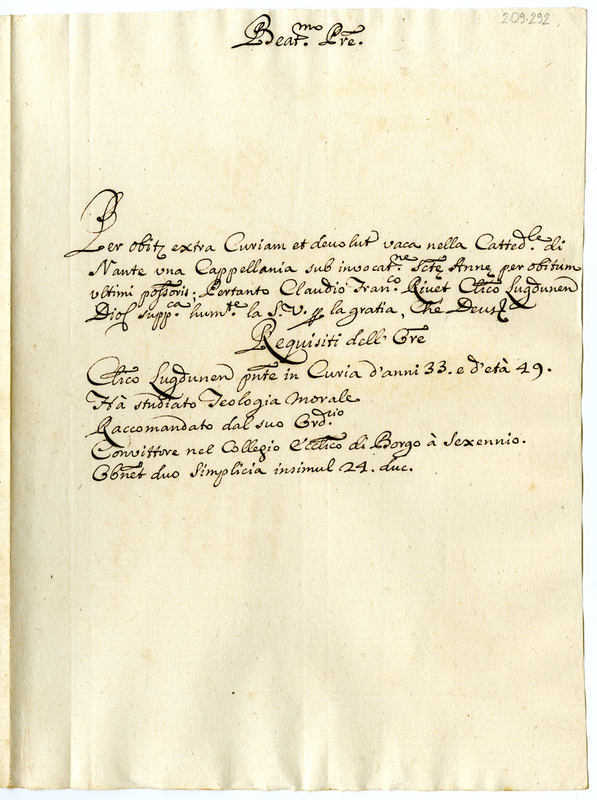 209-292
Beat.mo Pre.
Per obitũ extra Curiam et devolut vaca nella Catted.le di
Nante una Cappellania sub invocat.ne Sctę Annę per obitum
ultimi possoris. Pertanto Claudio Fran.co Rivet Clico Lugdunen
Dioc supp.ca hum.te la S. V. p la gratia, Che Deus
Requisiti dell' Ore
Clico Lugdunen pnte in Curia d'anni 33. e d'età 49.
Hà studiato Teologia Morale
Raccomandato dal suo Ord.rio
Convittore nel Collegio Ecclico di Borgo à Sexennio.
Obnet duo Simplicia insimul 24. duc.